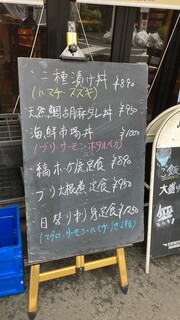 二種漬け丼 ¥890
(ハマチ スズキ)
天然鯛胡麻ダレ丼 ¥950
海鮮市場丼 ¥1000
(ブリ サーモン ホタルイカ)
縞ホッケ炭定食 ¥890
ブリ大根煮定食 ¥950
日替り刺身定食 ¥1250
(マグロ・サーモン・ハマチ
ご飯
大盛り